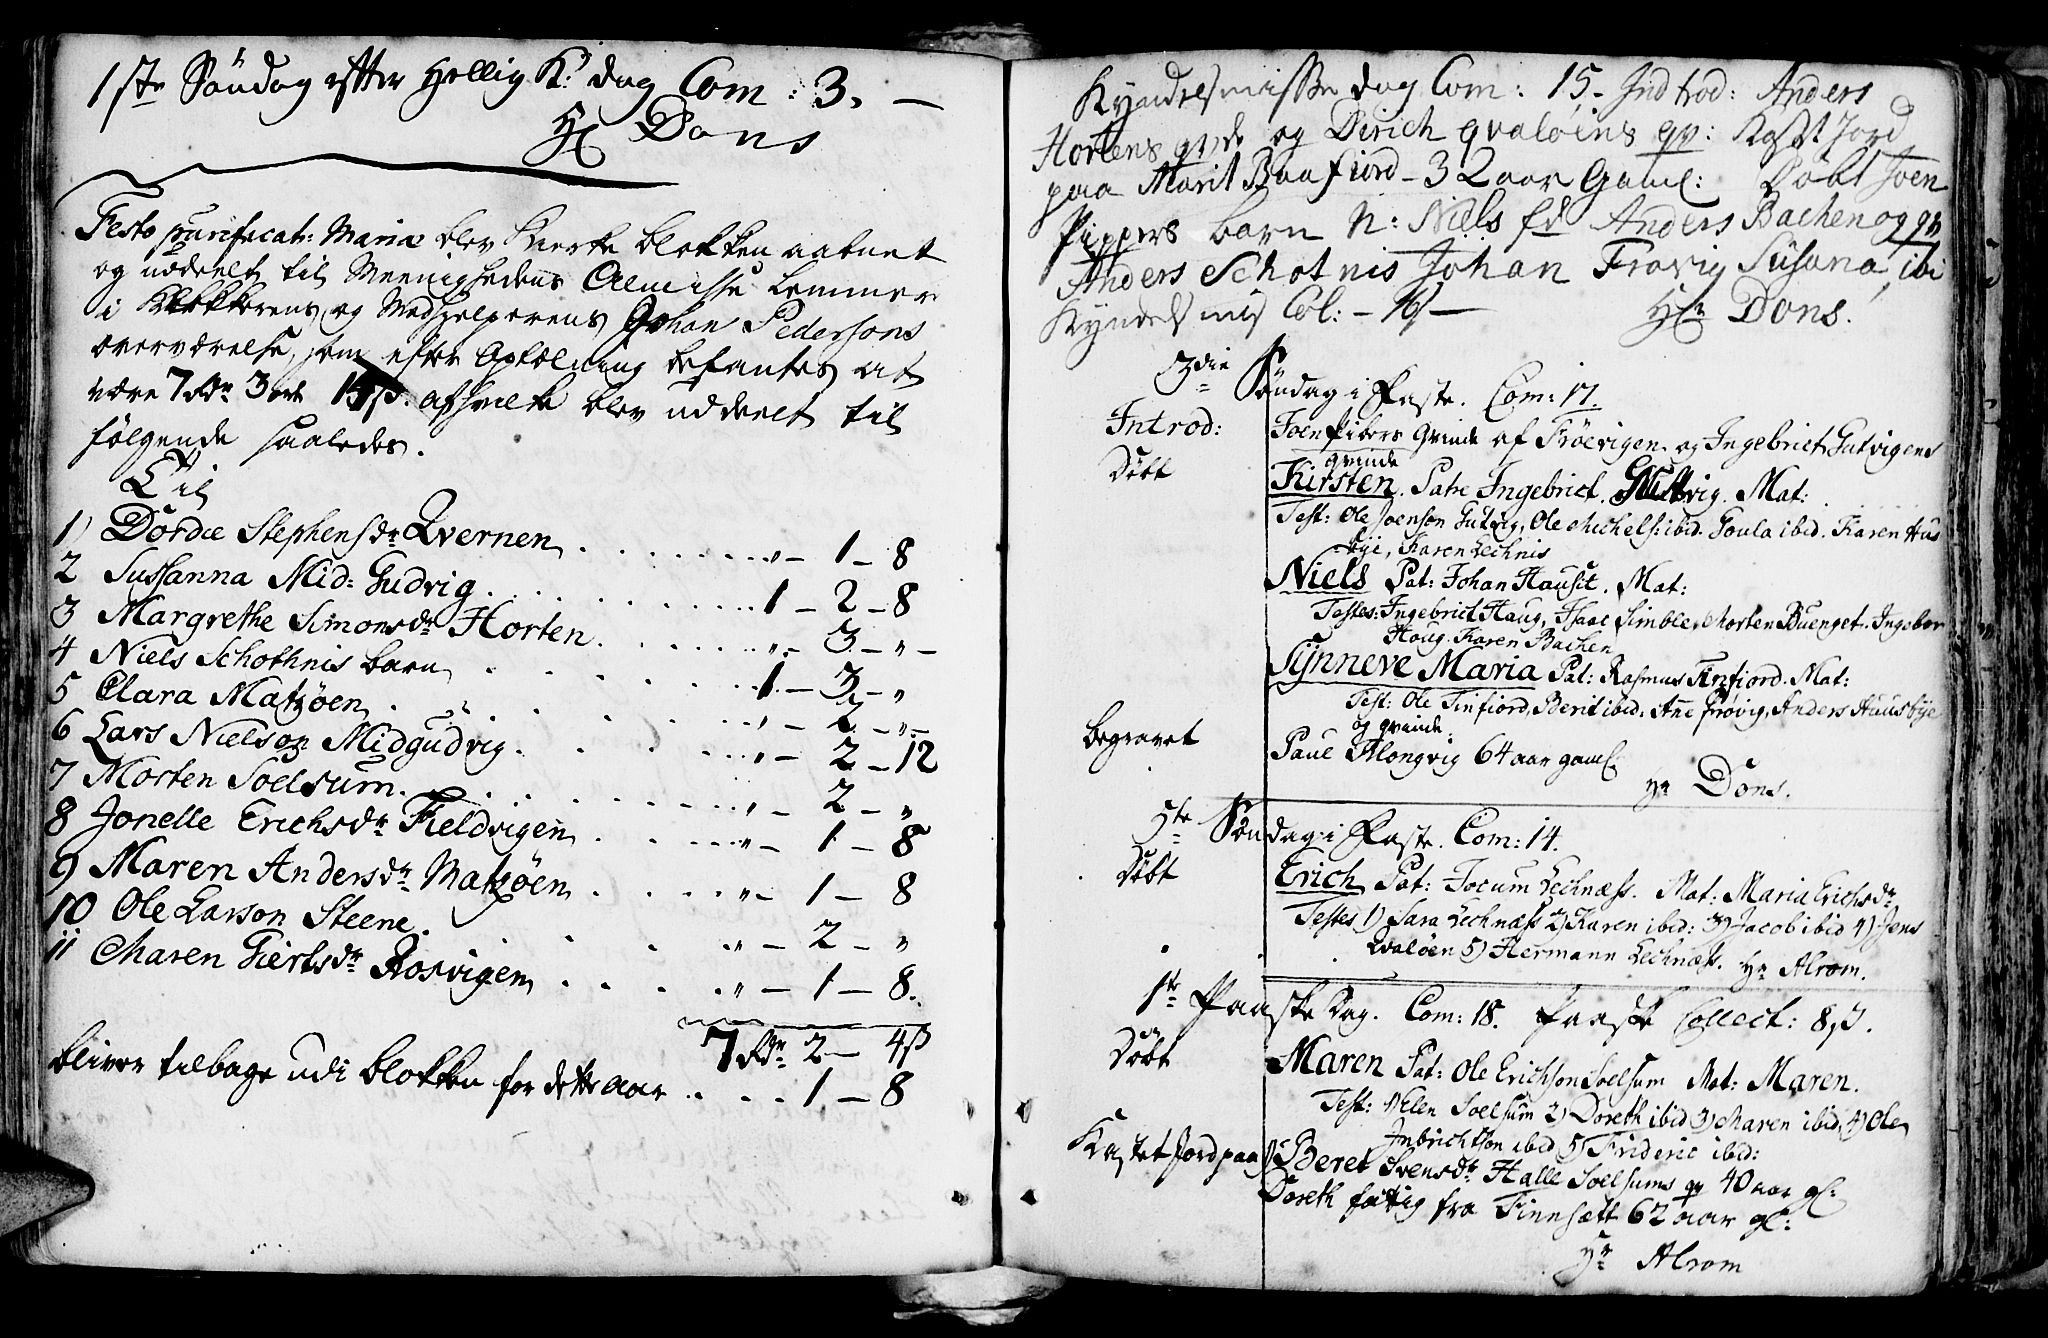 1ste Söndag efter Hellig K: dag Com: 3. —
Hr Dons
Festo purificat: Mariæ blev Kierke blokken aabnet
og uddeelt til Meenighedens Almisse Lemmer
i Klokkerens og Medhielperens Johan Pedersøns
overværelse, som efter Optælning befantes at
være 7 Rdr 3 ort 1 ß. afhvilke blev uddeelt til
følgende saaledes.
Til
1) Dordæ Stephensdr Qvernen . . . . . " — 1 — 8
2 Sussanna Mid: Gudvig . . . . . 1 — 2 — 8
3 Margrethe Simonsdr Horten . . . . . " — 3 — " —
4 Niels Schothnis barn . . . . . 1 — 3 — "
5 Clara Matzøen . . . . . " — 2 — " —
6 Lars Nielson Midgudvig . . . . . " — 2 — 12
7 Morten Soelsum . . . . . " — 2 — "
8 Jonelle Erichsdr Fieldvigen . . . . . " — 1 — 8
9 Maren Andersdr Matzøen . . . . . " — 1 — 8
10 Ole Larson Steene . . . . . " — 2 — "
11 Maren Giertsdr Rosvigen . . . . . " — 1 — 8.
7 Rdr 2 — 4ß
bliver tilbage udi blokken for dette aar . . . . 1 — 8
Kyndelsmisse dag Com: 15. Introd: Anders
Hortens qvde og Dirich Qvaløins qv: Kast Jord
paa Marit Baafiord — 32 aar Gaml: Döbt Joen
Pippers barn N: Niels fd Anders Bachen og qv
Anders Schotnis Johan Frøvig Susana ibi
Kyndelsmis Col: — 16ß — Hr Dons.
3die Söndag i Faste. Com: 17.
Introd: Joen Pibers Qvinde af Fröevigen og Ingebrict Gutvigens
qvinde
Döbt Kirsten. Patre Ingebrict. Guttvig. Mat:
Test: Ole Joenson Gutvig, Ole Michels: ibid. Goula ibid. Karen Hus
bye, Karen Lechnis
Niels Pat: Johan Hauset. Mat:
Testes: Ingebrict Haug, Isaac Simble, Morten Buenget. Ingebor
Haug. Karen Bachen
Synneve Maria Pat: Rasmus Finfiord. Mat:
Test: Ole Finfiord, Berit ibid: Anne Frøvig, Anders Huusbye
og qvinde.
begravet Paul Alongvig 64 aar gaml.
Hr Dons.
5te Søndag i Faste. Com: 14.
Döbt Erich Pat: Jocum Lechnæss. Mat: Maria Erichsdr
Testes 1) Sara Lechnæss 2) Karen ibid: 3) Jacob ibid 4) Jens
Qvaløen 5) Hermann Lechnæss. Hr Alrom.
1te Paaske Dag. Com: 18. Paaske Collect: 8ß.
Döbt Maren Pat: Ole Erichson Soelsum Mat: Maren.
Test: 1) Elen Soelsum 2) Doreth ibid 3) Maren ibid, 4) Ole
Inbrichtson ibid 5) Frideric ibid:
Kastet Jord paa Beret Svensdr Halle Soelsums qv 40 aar gl:
Doreth fattig fra Finnsætt 62 aar gl:
Hr Alrom